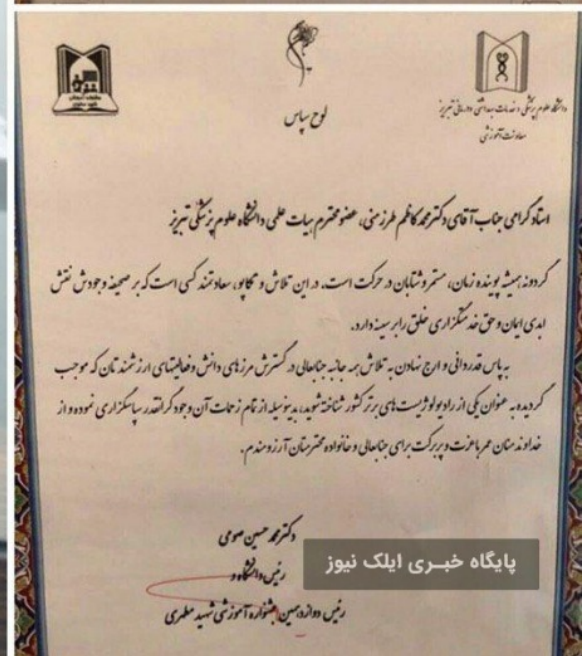 دانشگاه علوم پزشکی و خدمات بهداشتی درمانی تبریز
معاونت آموزشی
لوح سپاس
استاد گرامی جناب آقای دکتر محمد کاظم طرزمنی، عضو محترم هیات علمی دانشگاه علوم پزشکی تبریز
گردونه همیشه پوینده زمان، مستمر و شتابان در حرکت است، در این تلاش و تکاپو، سعادتمند کسی است که بر صحیفه وجودش نقش
ابدی ایمان و حق خدمتگزاری خلق را بر سینه دارد.
به پاس قدردانی و ارج نهادن به تلاش همه جانبه جنابعالی در گسترش مرزهای دانش و فعالیتهای ارزشمندتان که موجب
گردیده به عنوان یکی از رادیولوژیست های برتر کشور شناخته شوید، بدینوسیله از تمام زحمات آن وجود گرانقدر سپاسگزاری نموده و از
خداوند منان عمر باعزت و پربرکت برای جنابعالی و خانواده محترمتان آرزومندم.
دکتر محمد حسین صومی
رئیس دانشگاه و
رئیس دوازدهمین جشنواره آموزشی شهید مطهری
پایگاه خبری ایلک نیوز